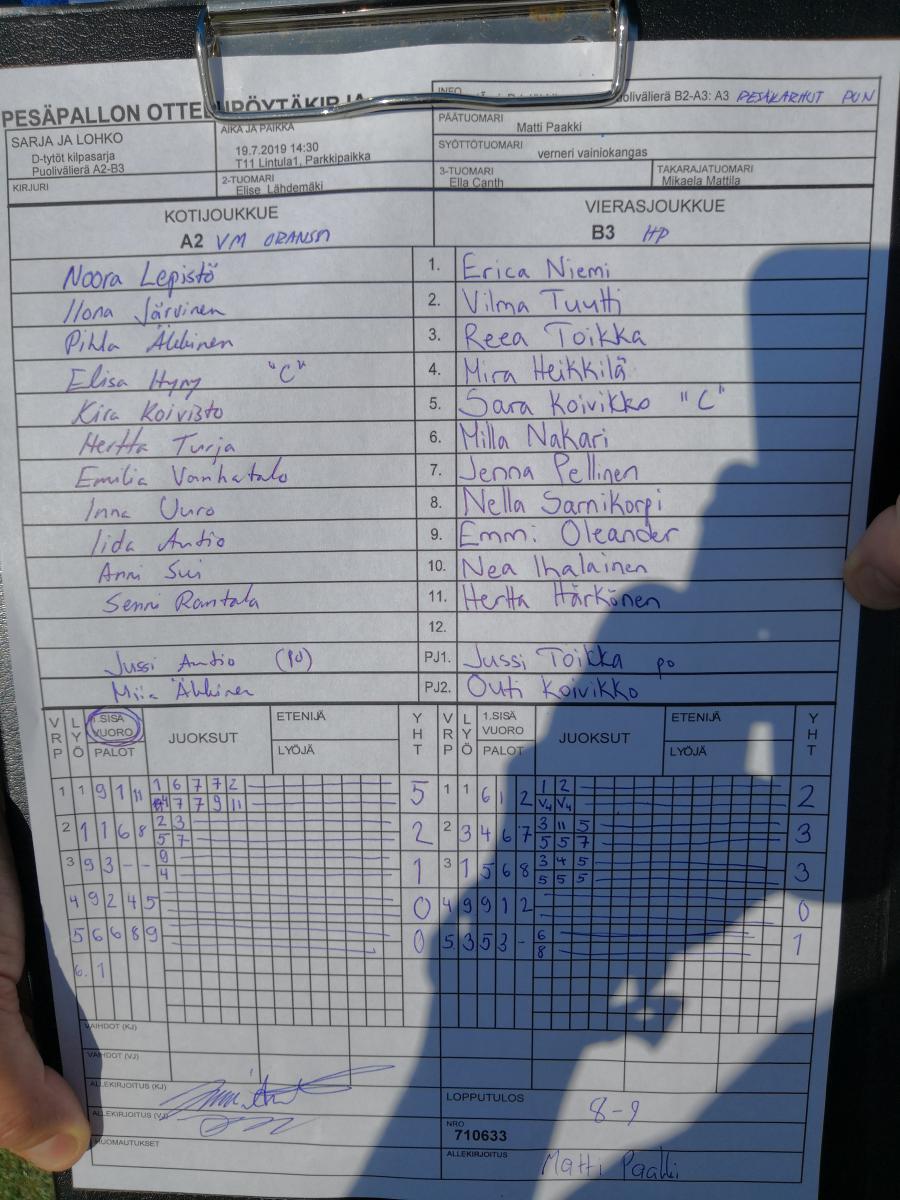 PESÄPALLON OTTELUPÖYTÄKIRJA
INFO
Puolivälierä B2-A3: A3 PESÄKARHUT PUN
SARJA JA LOHKO
D-tytöt kilpasarja
Puolivälierä A2-B3
AIKA JA PAIKKA
19.7.2019 14:30
T11 Lintula1, Parkkipaikka
PÄÄTUOMARI
Matti Paakki
SYÖTTÖTUOMARI
verneri vainiokangas
KIRJURI
2-TUOMARI
Elise Lähdemäki
3-TUOMARI
Ella Canth
TAKARAJATUOMARI
Mikaela Mattila
KOTIJOUKKUE VIERASJOUKKUE
A2 VM ORANSSI B3 HP
Noora Lepistö 1. Erica Niemi
Ilona Järvinen 2. Vilma Tuutti
Pihla Äkkinen 3. Reea Toikka
Elisa Hyny "C" 4. Mira Heikkilä
Kira Koivisto 5. Sara Koivikko "C"
Hertta Turja 6. Milla Nakari
Emilia Vanhatalo 7. Jenna Pellinen
Inna Uuro 8. Nella Sarnikorpi
Iida Autio 9. Emmi Oleander
Anni Sui 10. Nea Ihalainen
Senni Rantala 11. Hertta Härkönen
12.
Jussi Autio (PO) PJ1. Jussi Toikka po
Miia Äkkinen PJ2. Outi Koivikko
VRP LYÖ 1.SISÄ VUORO PALOT JUOKSUT ETENIJÄ LYÖJÄ YHT VRP LYÖ 1.SISÄ VUORO PALOT JUOKSUT ETENIJÄ LYÖJÄ YHT
1 1 9 1 11 1 6 7 7 2 5 1 1 6 1 2 1 2 2
4 7 7 9 11 V4 V4
2 1 1 6 8 2 3 2 2 3 4 6 7 3 11 5 3
5 7 5 5 7
3 9 3 - - 9 1 3 1 5 6 8 3 4 5 3
4 5 5 5
4 9 2 4 5 0 4 9 9 1 2 0
5 6 6 8 9 0 5 3 5 3 - 6 1
8
6. 1
VAIHDOT (KJ)
VAIHDOT (VJ)
ALLEKIRJOITUS (KJ)
ALLEKIRJOITUS (VJ)
HUOMAUTUKSET
LOPPUTULOS 8-9
NRO
710633
ALLEKIRJOITUS Matti Paakki